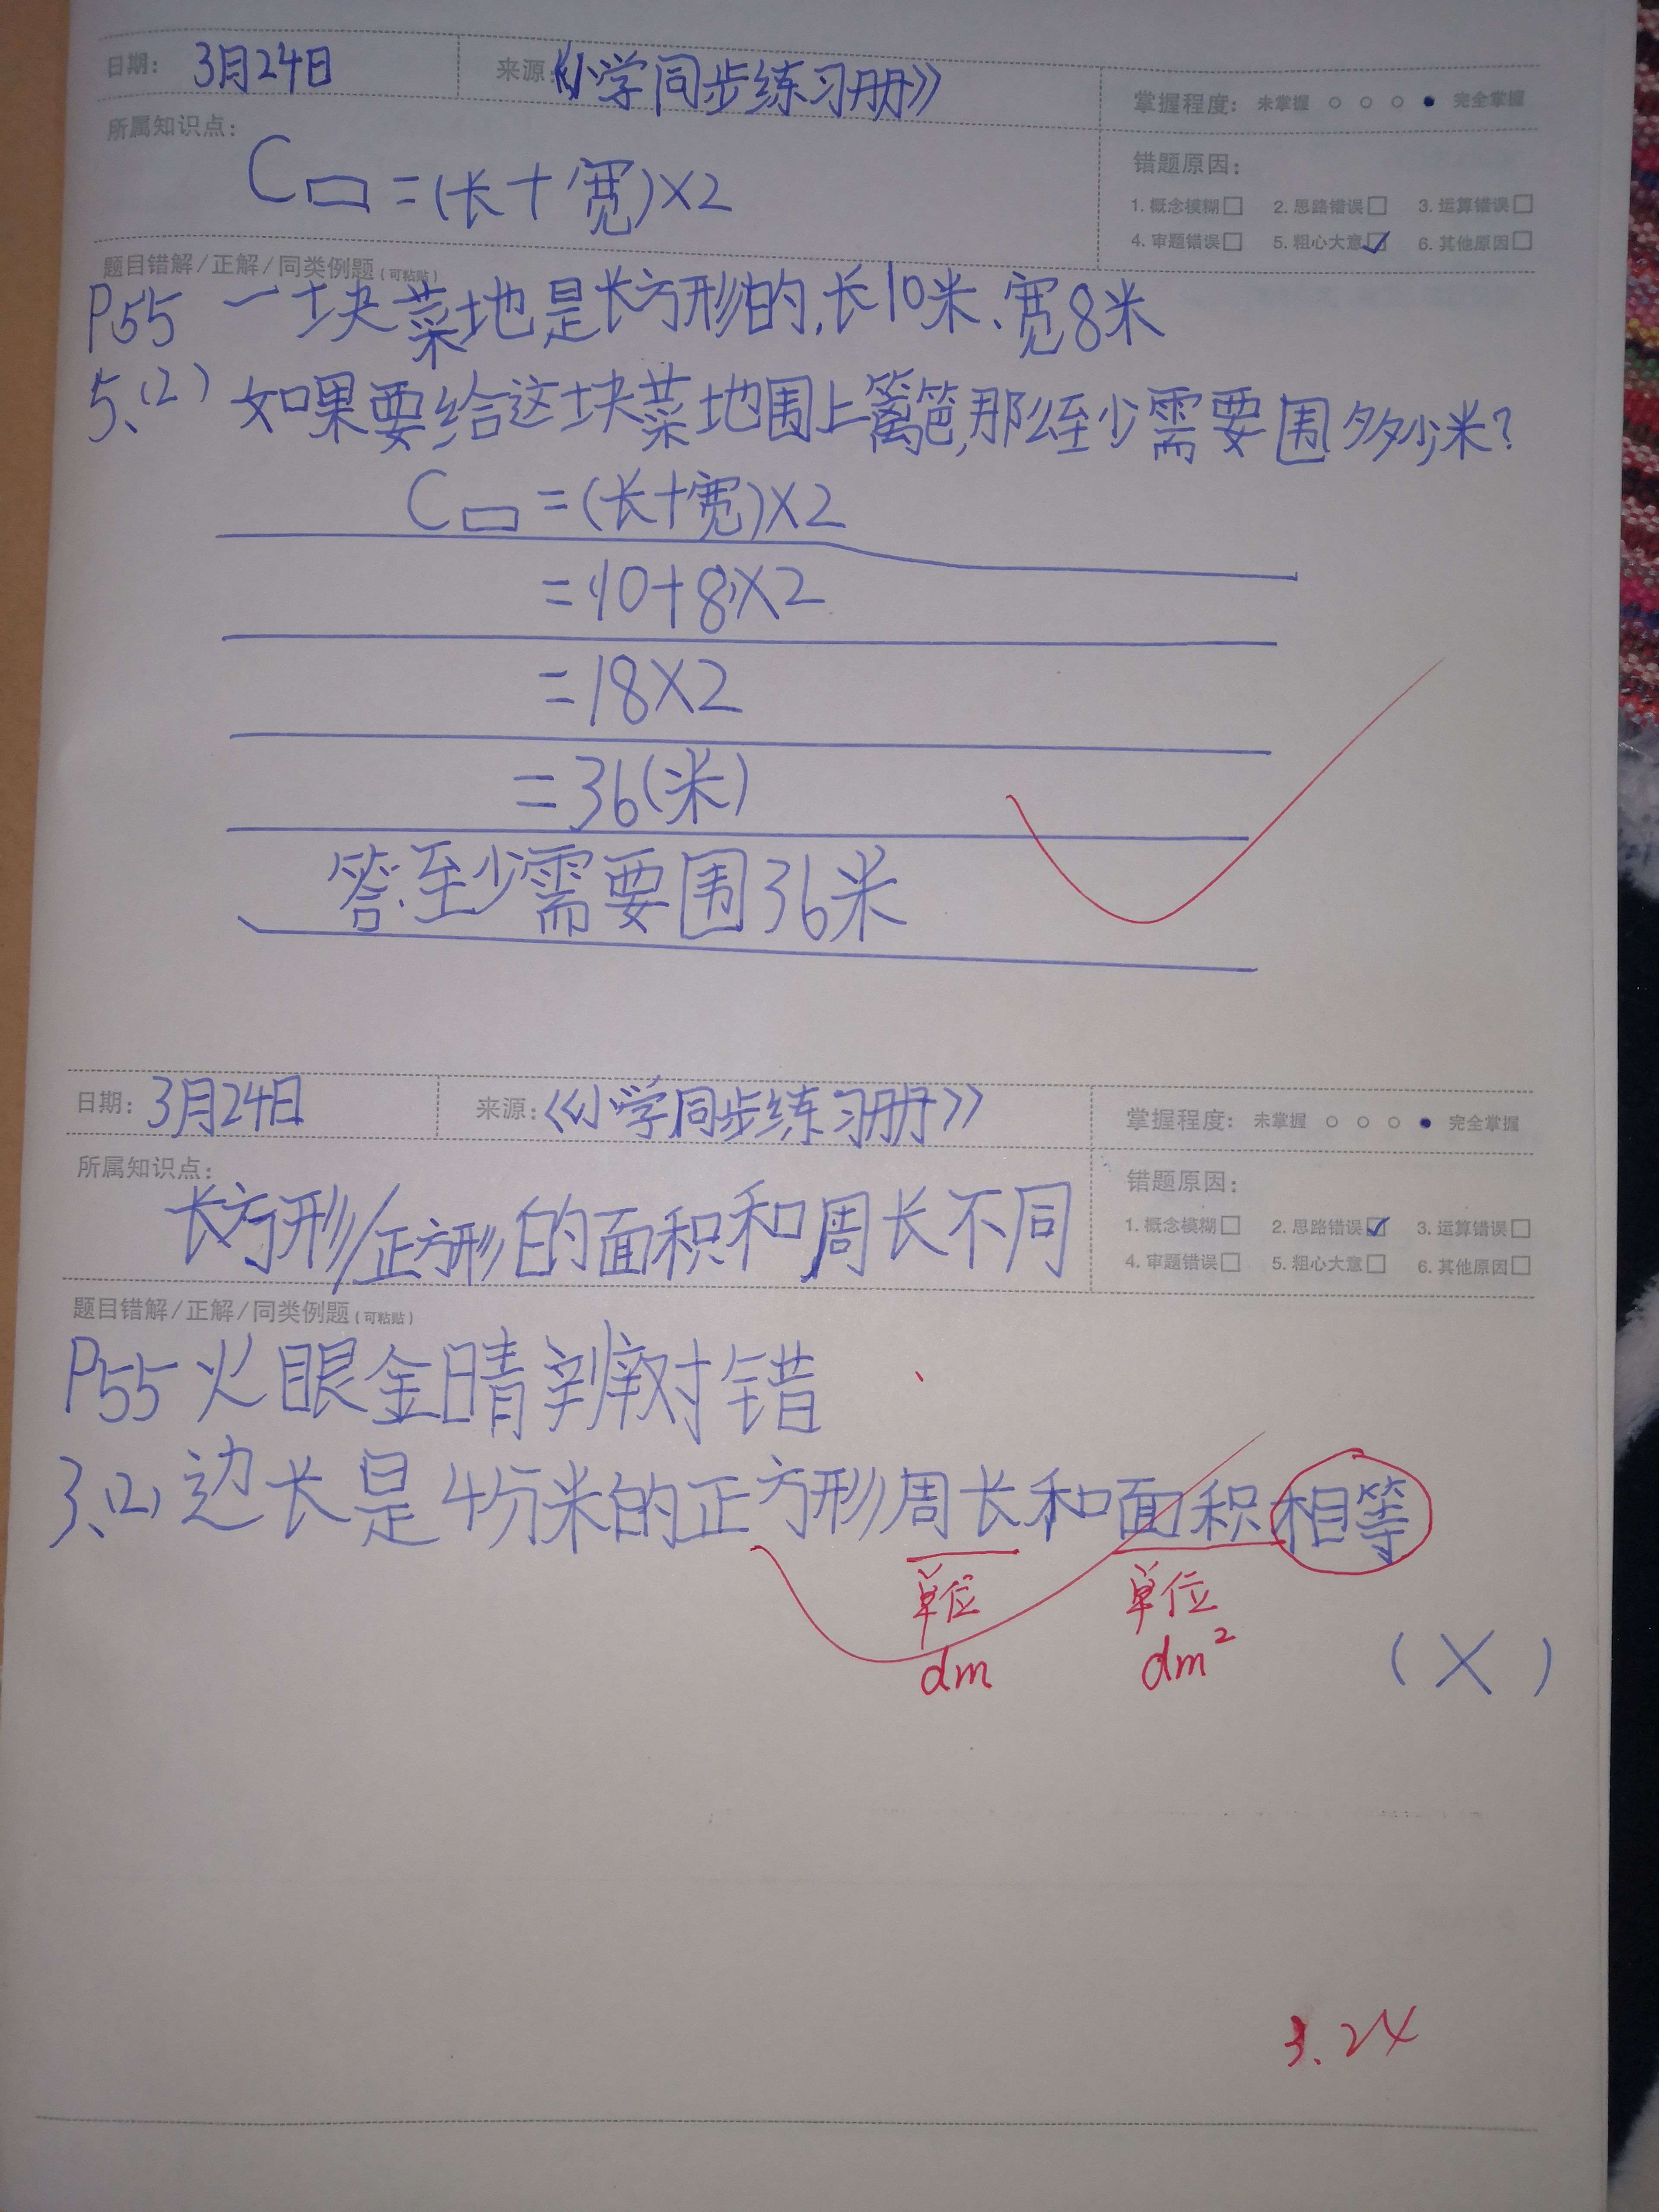 日期： 3月24日 来源：《小学同步练习册》 掌握程度： 未掌握 ○ ○ ○ ● 完全掌握
所属知识点：
C▭=(长+宽)×2
错题原因：
1. 概念模糊□ 2. 思路错误□ 3. 运算错误□
4. 审题错误□ 5. 粗心大意☑ 6. 其他原因□
题目错解/正解/同类例题(可粘贴)
P55 一块菜地是长方形的,长10米、宽8米
5、(2) 如果要给这块菜地围上篱笆,那么至少需要围多少米?
C▭=(长+宽)×2
=(10+8)×2
=18×2
=36(米)
答:至少需要围36米
日期： 3月24日 来源：《小学同步练习册》 掌握程度： 未掌握 ○ ○ ○ ● 完全掌握
所属知识点：
长方形/正方形的面积和周长不同
错题原因：
1. 概念模糊□ 2. 思路错误☑ 3. 运算错误□
4. 审题错误□ 5. 粗心大意□ 6. 其他原因□
题目错解/正解/同类例题(可粘贴)
P55 火眼金睛辨对错
3、(2) 边长是4分米的正方形周长和面积相等
单位 单位
dm dm²
(×)
3.24